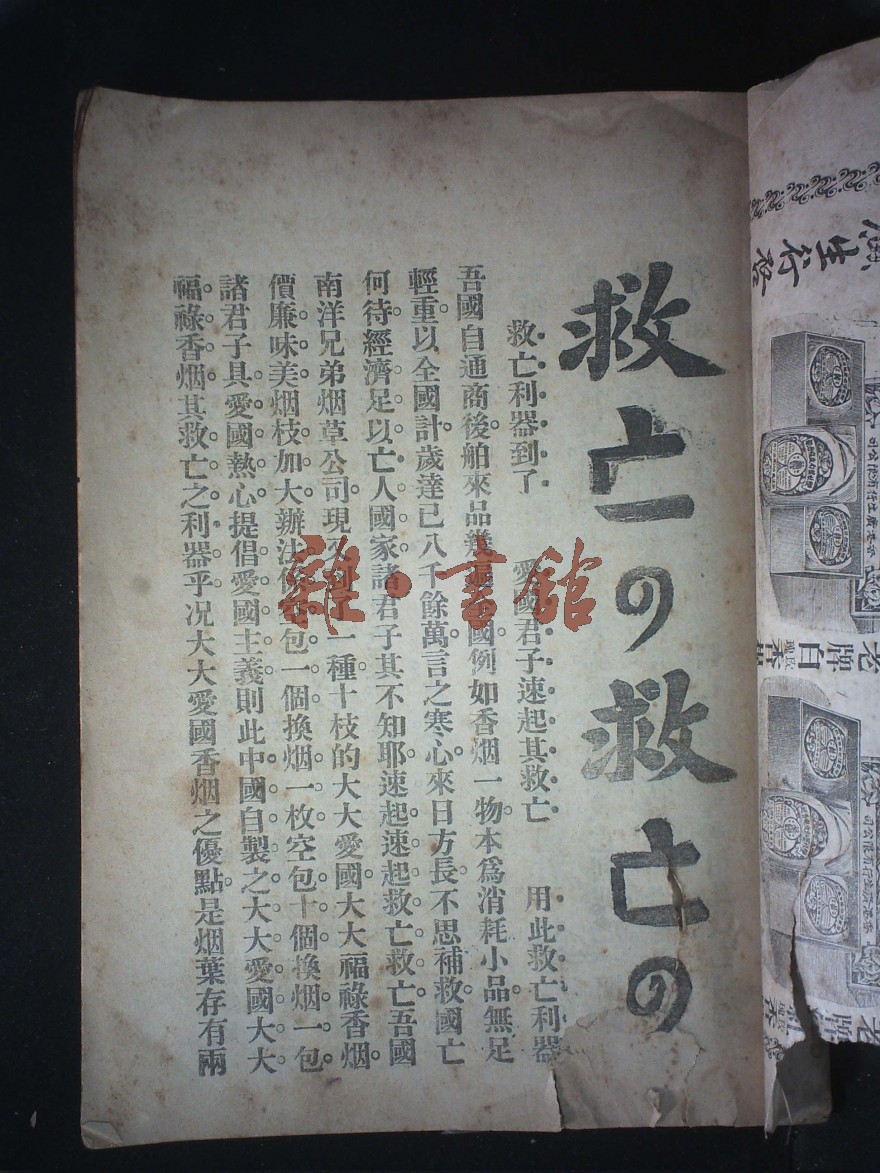 救亡の救亡の
救亡利器到了 愛國君子速起其救亡 用此救亡利器
吾國自通商後舶來品幾遍國例如香烟一物本爲消耗小品無足
輕重以全國計歲達已八千餘萬言之寒心來日方長不思補救國亡
何待經濟足以亡人國家諸君子其不知耶速起速起救亡救亡吾國
南洋兄弟烟草公司現一種十枝的大大愛國大大福祿香烟
價廉味美烟枝加大辦法包一個換烟一枚空包十個換烟一包
諸君子具愛國熱心提倡愛國主義則此中國自製之大大愛國大大
福祿香烟其救亡之利器乎况大大愛國香烟之優點是烟葉存有兩
雜·書館
生行
老牌白
香